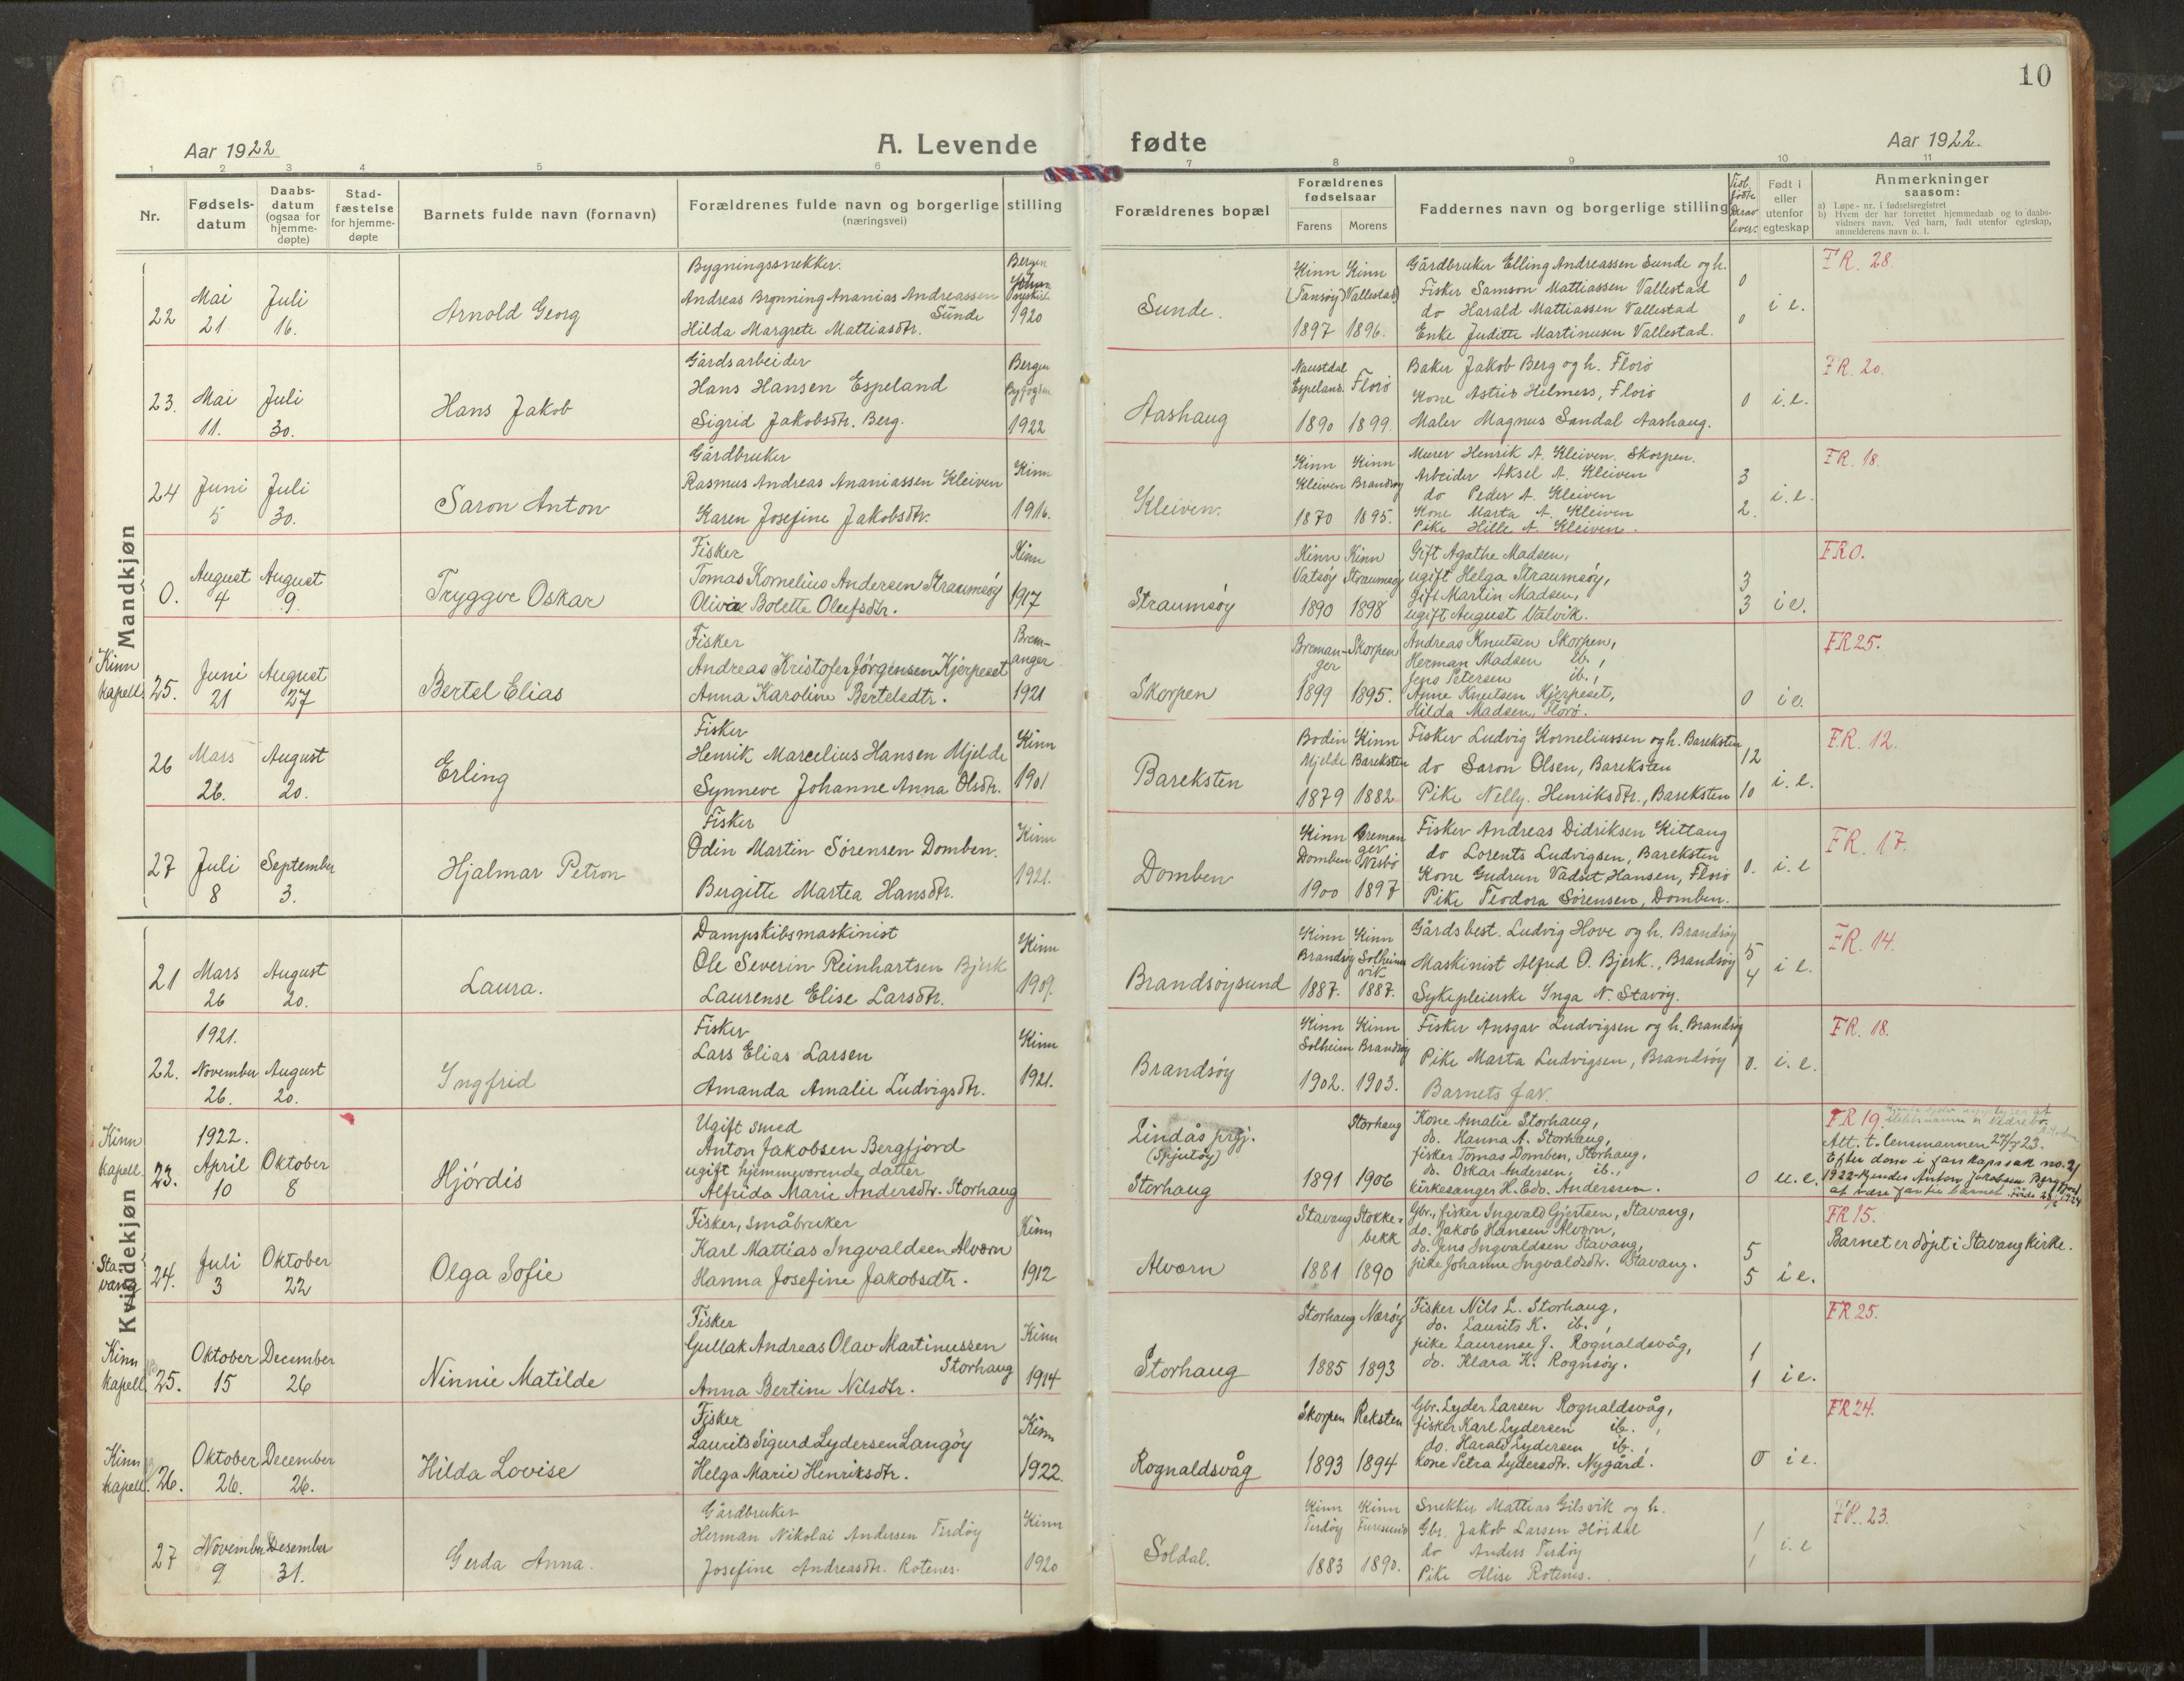 10
Aar 1922
A. Levende fødte
Aar 1922.
1 2 3 4 5 6 7 8 9 10 11
Nr.
Fødsels-datum
Daabs-datum (ogsaa for hjemme-døpte)
Stad-fæstelse for hjemme-døpte
Barnets fulde navn (fornavn)
Forældrenes fulde navn og borgerlige stilling
(næringsvei)
Forældrenes bopæl
Forældrenes fødselsaar
Farens Morens
Faddernes navn og borgerlige stilling
Født i eller utenfor egteskap
Anmerkninger
saasom:
a) Løpe-nr. i fødselsregistret
b) Hvem der har forrettet hjemmedaab og to daabs-vidners navn. Ved barn, født utenfor egteskap, anmelderens navn o. l.
Mandkjøn
22 Mai 21 Juli 16. Arnold Georg
Bygningssnekker.
Andreas Brønning Ananias Andreassen Sunde
Hilda Margrete Mattiasdtr.
Bergen 1920
Sunde.
Kinn (Tansøy) 1897 Kinn (Vallestad) 1896.
Gårdbruker Elling Andreassen Sunde og h.
Fisker Samson Mattiassen Vallestad
do Harald Mattiassen Vallestad
Enke Juditte Martinusen Vallestad.
0 0 i e. FR. 28.
23. Mai 11. Juli 30. Hans Jakob
Gårdsarbeider
Hans Hansen Espeland
Sigrid Jakobsdtr. Berg.
Bergen Byfogden 1922
Aashaug
Naustdal Espeland 1890 Florø 1899.
Baker Jakob Berg og h. Florø
Kone Astrid Helmess, Florø
Maler Magnus Sandal Aashaug.
0 i.e. FR. 20.
24 Juni 5 Juli 30. Saron Anton
Gårdbruker
Rasmus Andreas Ananiassen Kleiven
Karen Josefine Jakobsdtr.
Kinn 1916.
Kleiven.
Kinn Kleiven 1870 Kinn Brandsøy 1895.
Murer Henrik A. Kleiven. Skorpen.
Arbeider Aksel A. Kleiven
do Peder A. Kleiven
Kone Marta A. Kleiven
Pike Hille A. Kleiven.
3 2. i.e. FR. 18.
0. August 4 August 9. Tryggve Oskar
Fisker
Tomas Kornelius Andersen Straumsøy
Olivia Bolette Olufsdtr.
Kinn 1917
Straumsøy
Kinn Vatsøy 1890 Kinn Straumsøy 1898
Gift Agathe Madsen,
ugift Helga Straumsøy,
Gift Martin Madsen,
ugift August Valvik.
3 3 i e. FR 0.
Kinn kapell. 25. Juni 21 August 27 Bertel Elias
Fisker
Andreas Kristofer Jørgensen Kjerpeset
Anna Karoline Bertelsdtr.
Bremanger 1921
Skorpen
Bremanger 1899 Skorpen 1895.
Andreas Knutsen Skorpen,
Herman Madsen ib.,
Jens Petersen ib.,
Anne Knutsen Kjerpeset,
Hilda Madsen, Florø.
0 i e. FR 25.
26 Mars 26. August 20. Erling
Fisker
Henrik Marcelius Hansen Mjelde
Synneve Johanne Anna Olsdtr.
Kinn 1901
Bareksten
Bodin Mjelde 1879 Kinn Bareksten 1882
Fisker Ludvig Korneliussen og h. Bareksten
do Saron Olsen, Bareksten
Pike Nelly. Henriksdtr., Bareksten
12 10 i.e. FR. 12.
27 Juli 8 September 3. Hjalmar Petron
Fisker
Odin Martin Sørensen Domben.
Birgitte Martea Hansdtr.
Kinn 1921.
Domben
Kinn Domben 1900 Bremanger Nesbø 1897
Fisker Andreas Didriksen Kittang
do Lorents Ludvigsen, Bareksten
Kone Gudrun Vadset Hansen, Florø
Pike Teodora Sørensen, Domben.
0. i.e FR. 17.
Kvindekjøn
21 Mars 26 August 20. Laura.
Dampskibsmaskinist
Ole Severin Reinhartsen Bjerk
Laurense Elise Larsdtr.
Kinn 1909.
Brandsøysund
Kinn Brandsøy 1887. Kinn Solheimsvik 1887.
Gårdsbest. Ludvig Hove og h. Brandsøy
Maskinist Alfred O. Bjerk., Brandsøy
Sykepleierske Inga N. Stavøy.
5 4 i e. FR. 14.
22. 1921. November 26. August 20. Ingfrid
Fisker
Lars Elias Larsen
Amanda Amalie Ludvigsdtr.
Kinn 1921.
Brandsøy
Kinn Solheim 1902. Kinn Brandsøy 1903.
Fisker Ansgar Ludvigsen og h. Brandsøy
Pike Marta Ludvigsen, Brandsøy
Barnets far.
0. i. e. FR. 18.
Kinn kapell. 23. 1922. April 10 Oktober 8 Hjørdis
Ugift smed
Anton Jakobsen Bergfjord
ugift hjemmeværende datter
Alfrida Marie Andersdtr. Storhaug
Lindås prgj.
(Spjutøy)
Storhaug
1891 Storhaug 1906
Kone Amalie Storhaug,
do. Hanna A. Storhaug,
fisker Tomas Domben, Storhaug,
do. Oskar Andersen, ib.,
kirkesanger H. Edv. Anderssen.
0 u. e. FR 19.
Att. t. lensmannen 27/7 23.
Efter dom i farskapssak no. 2/1922 kjendes Anton Jakobsen Bergfjord at være far til barnet.
Stavang 24. Juli 3 Oktober 22 Olga Sofie
Fisker, småbruker
Karl Mattias Ingvaldsen Alværn
Hanna Josefine Jakobsdtr.
Kinn 1912
Alværn
Stavang 1881 Stokkebekk 1890
Gbr., fisker Ingvald Gjertsen, Stavang,
do. Jakob Hansen Alværn,
do. Jens Ingvaldsen Stavang,
pike Johanne Ingvaldsdtr. Stavang.
5 5 i e. FR 15.
Barnet er døpt i Stavang kirke.
Kinn kapell. 25. Oktober 15 December 26 Ninnie Matilde
Fisker
Gullak Andreas Olav Martinussen Storhaug
Anna Bertine Nilsdtr.
Kinn 1914
Storhaug
Storhaug 1885 Nærøy 1893
Fisker Nils L. Storhaug,
do. Laurits K. ib.,
pike Laurense J. Rognaldsvåg,
do. Klara K. Rognsøy.
1 1 i e. FR 25.
Kinn kapell. 26. Oktober 26. December 26. Hilda Lovise
Fisker
Laurits Sigurd Lydersen Langøy
Helga Marie Henriksdtr.
Kinn 1922.
Rognaldsvåg
Skorpen 1893 Reksten 1894
Gbr. Lyder Larsen Rognaldsvåg,
fisker Karl Lydersen ib.,
do. Harald Lydersen ib.,
kone Petra Lydersdtr. Nygård.
0 i e. FR 24.
27 November 9 Desember 31. Gerda Anna.
Gårdbruker
Herman Nikolai Andersen Terdøy
Josefine Andreasdtr. Rotenes.
Kinn 1920
Soldal.
Kinn Terdøy 1883 Kinn Furesund 1890.
Snekker Mattias Gilsvik og h.
Gbr. Jakob Larsen Høidal
do Anders Terdøy
Pike Alise Rotenes.
1 1 i. e FR. 23.